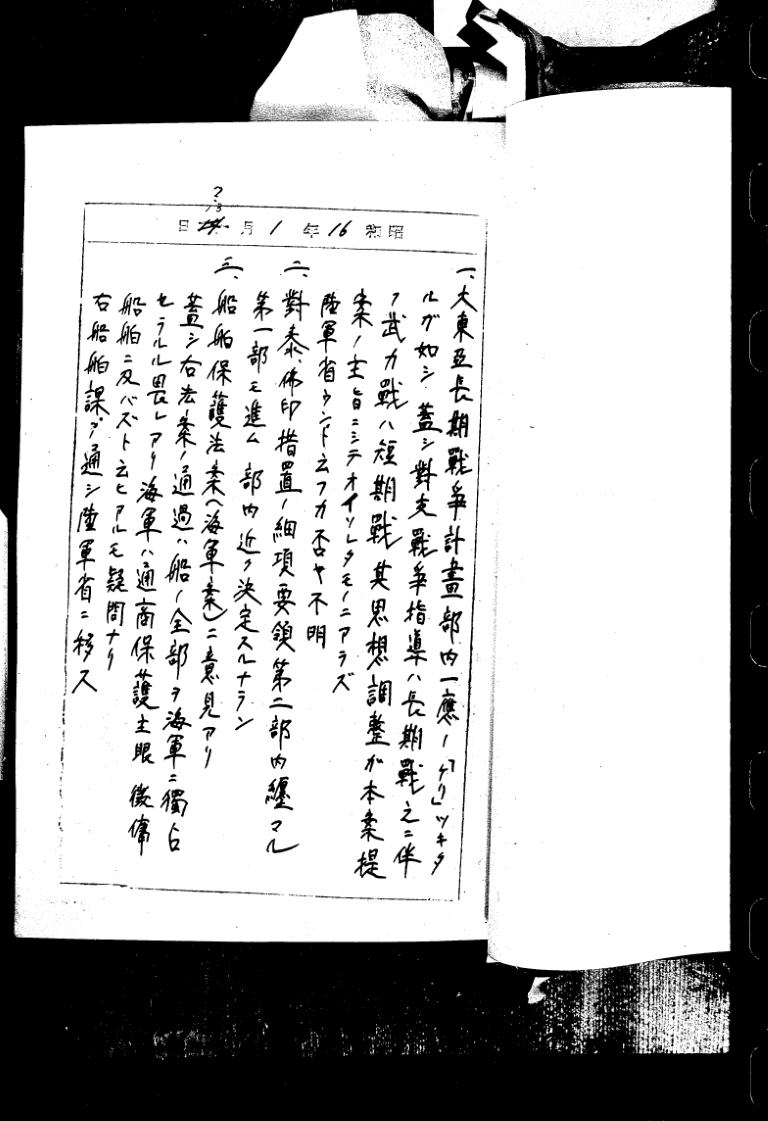 昭和16年1月18日
?
一、大東亜長期戰爭計畫部内一應ノ「ケリ」ツキタ
ルガ如シ蓋シ對支戰爭指導ハ長期戰之ニ伴
フ武力戰ハ短期戰其思想調整ガ本案提
案ノ主旨ニシテオイソレタモノニアラズ
陸軍省ウンド云フカ否ヤ不明
二、對泰、佛印措置ノ細項要領第二部内纒マル
第一部モ進ム 部内近ク決定スルナラン
三、船舶保護法案(海軍案)ニ意見アリ
蓋シ右法案ノ通過ハ船ノ全部ヲ海軍ニ獨占
セラルル畏レアリ海軍ハ通商保護主眼 徴傭
船舶ニ及バズト云ヒアルモ疑問ナリ
右船舶課ヲ通シ陸軍省ニ移ス